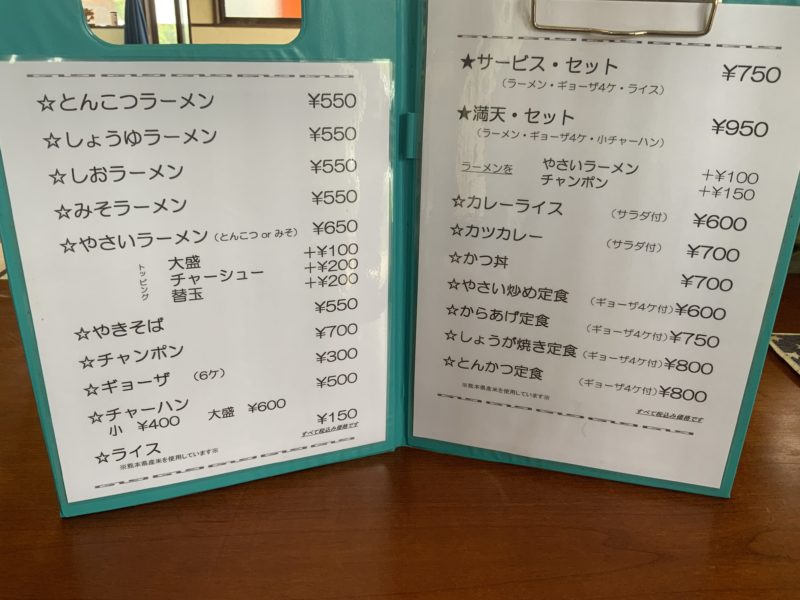 ☆とんこつラーメン ¥550
☆しょうゆラーメン ¥550
☆しおラーメン ¥550
☆みそラーメン ¥550
☆やさいラーメン(とんこつ or みそ) ¥650
トッピング
大盛 +¥100
チャーシュー +¥200
替玉 +¥200
☆やきそば ¥550
☆チャンポン ¥700
☆ギョーザ (6ケ) ¥300
☆チャーハン ¥500
小 ¥400 大盛 ¥600
☆ライス ¥150
すべて税込み価格です
※熊本県産米を使用しています※
★サービス・セット ¥750
(ラーメン・ギョーザ4ケ・ライス)
★満天・セット ¥950
(ラーメン・ギョーザ4ケ・小チャーハン)
ラーメンを やさいラーメン +¥100
チャンポン +¥150
☆カレーライス (サラダ付) ¥600
☆カツカレー (サラダ付) ¥700
☆かつ丼 ¥700
☆やさい炒め定食 (ギョーザ4ケ付) ¥600
☆からあげ定食 (ギョーザ4ケ付) ¥750
☆しょうが焼き定食 (ギョーザ4ケ付) ¥800
☆とんかつ定食 (ギョーザ4ケ付) ¥800
※熊本県産米を使用しています※
すべて税込み価格です